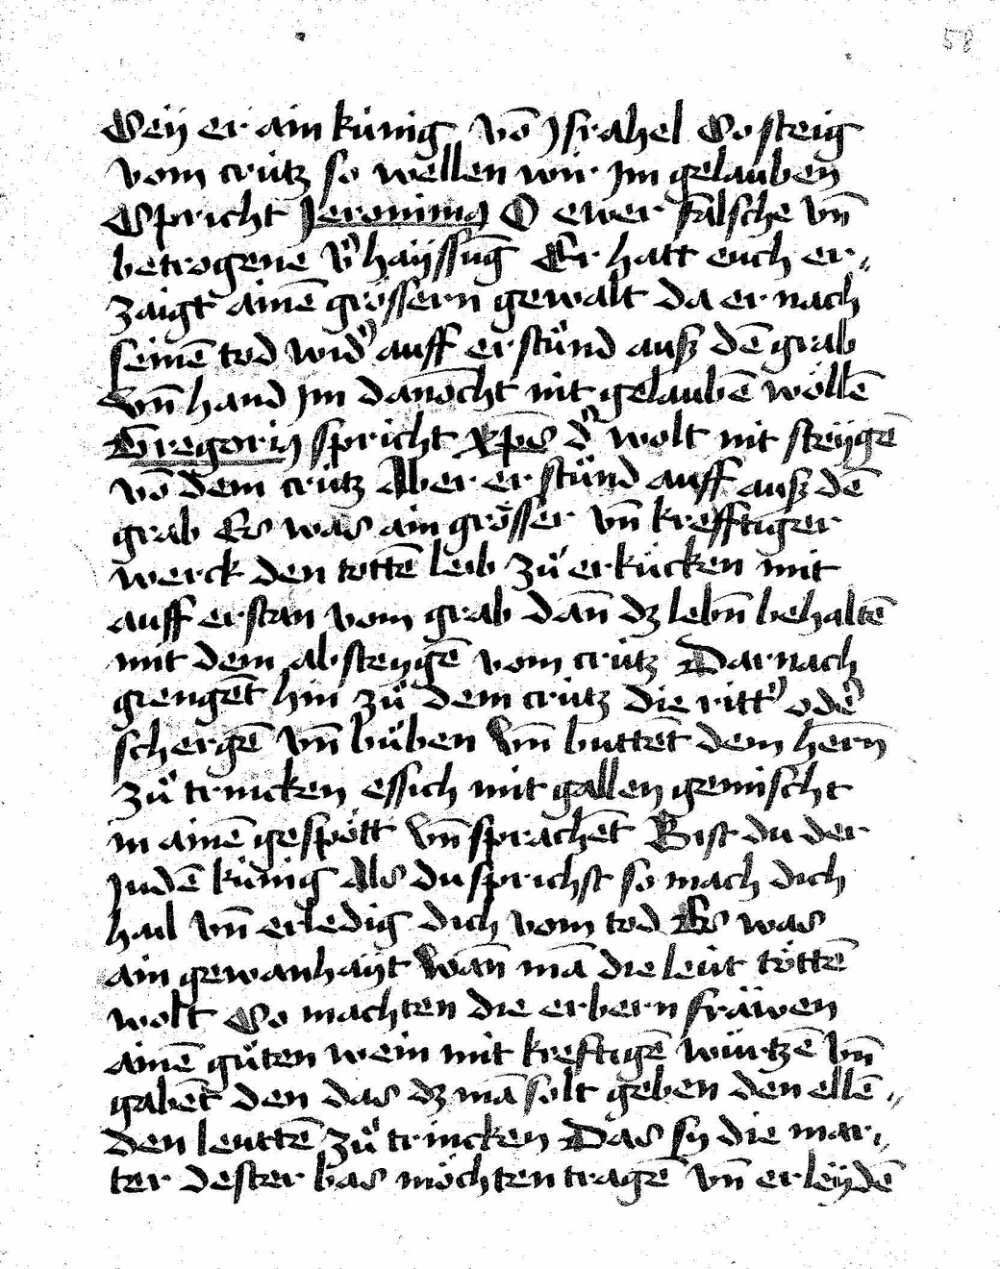 58
Seÿ er ain kúnig vō Jsrahel So steig
vom crútz so wellen wir jm gelauben
Spricht Jeronimꝰ O ewer falsche vn̄
betrogene v̓haÿssūg Er hatt euch er„
zaigt ainē grössern gewalt da er nach
seinē tod wid̓ auff erstůnd ausz dē grab
vn̄ hand jm danōcht nit gelaubē wöllē
Gregoriꝰ spricht xp̄s d̓ wolt nit steÿgē
vō dem crútz Aber er stůnd auff ausz dē
grab Es was ain grösser vn̄ krefftiger
werck den tottē leib zů erkúcken mit
auff erstan vom grab dan̄ dz lebn̄ behaltē
mit dem absteygē vom crútz Dar nach
giengēt hin zů dem crútz die ritt̓ od̓e
schergē vn̄ bůben vn̄ buttēt dem hern̄
zů trincken essich mit gallen gemischt
in ainē gespött vn̄ sprachēt Bist du der
Judē kúnig Als du sprichst so mach dich
hail vn̄ erledig dich vom tod Es was
ain gewanhaÿt wan̄ mā die leút töttē
wolt So machten die erbern fräwen
ainē gůten wein mit kreftigē wúrtzē vn̄
gabēt den das dz mā solt geben den ellē„
den leuttē zů trincken Das sy die mar„
ter dester bas möchten tragē vn̄ erleÿdē